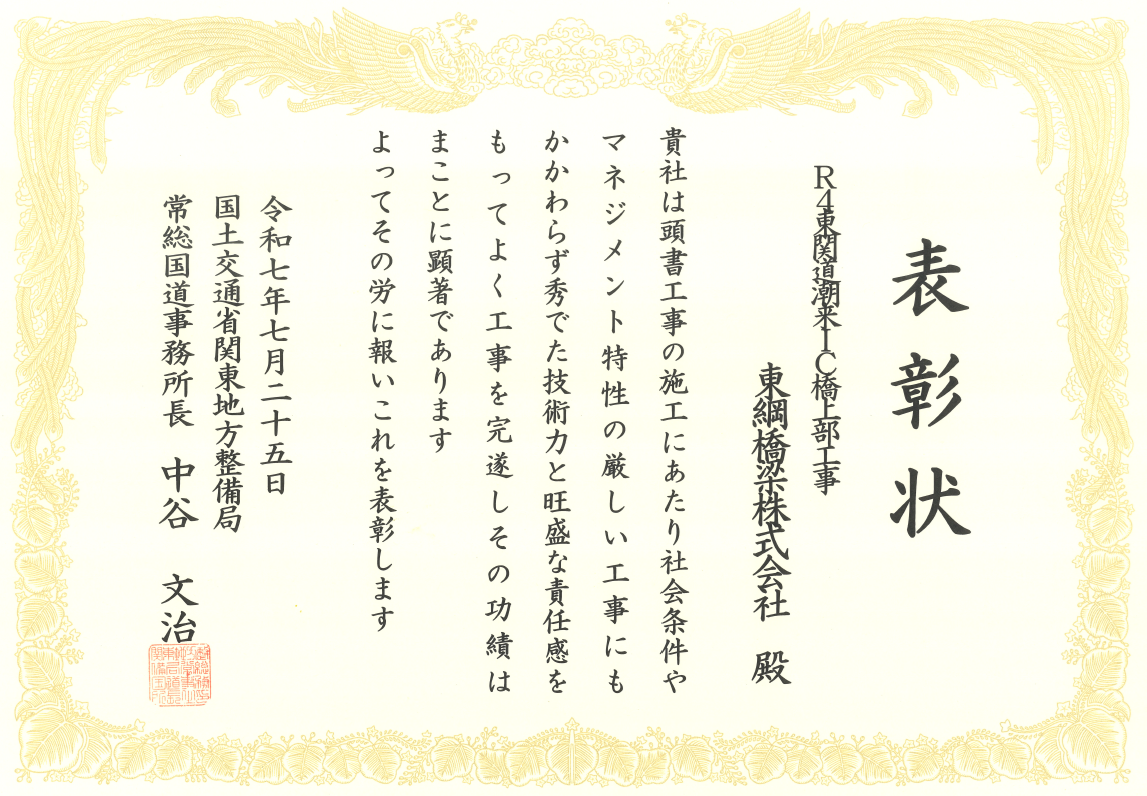 表彰状
R4東関道潮来IC橋上部工事
東綱橋梁株式会社 殿
貴社は頭書工事の施工にあたり社会条件や
マネジメント特性の厳しい工事にも
かかわらず秀でた技術力と旺盛な責任感を
もってよく工事を完遂しその功績は
まことに顕著であります
よってその労に報いこれを表彰します
令和七年七月二十五日
国土交通省関東地方整備局
常総国道事務所長 中谷 文治